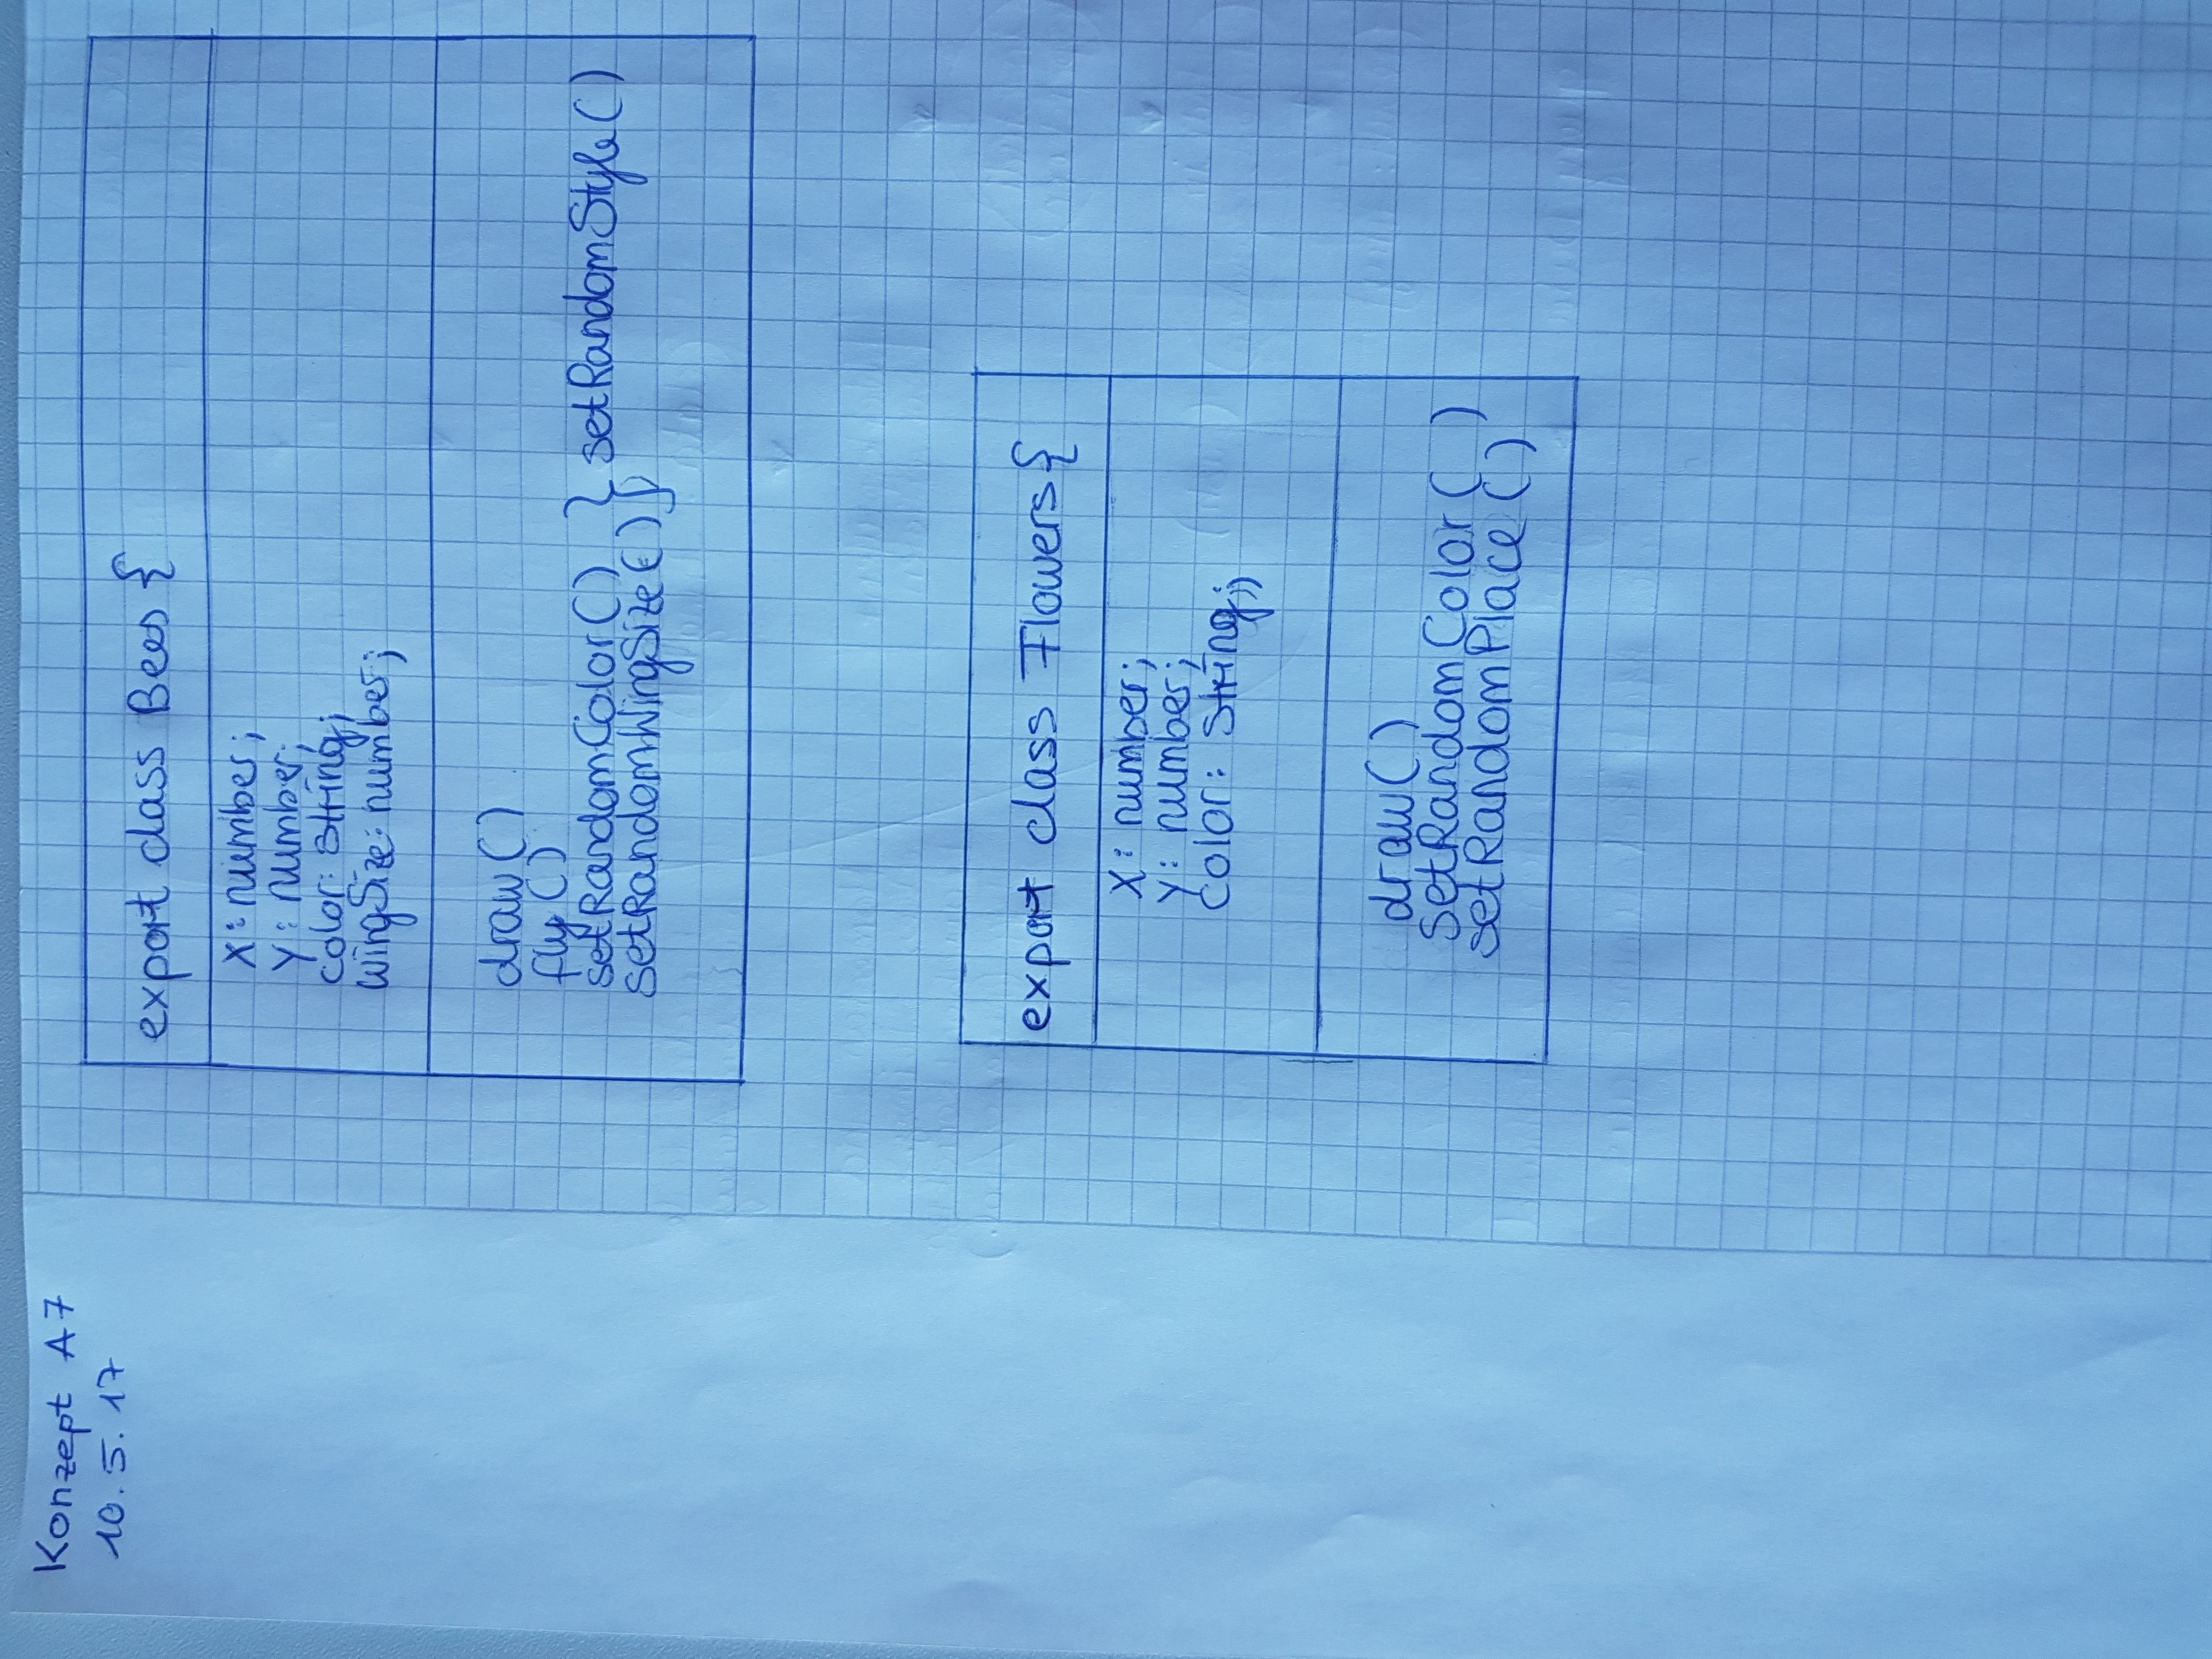 Konzept A7
10.5.17
export class Bees {
x: number;
y: number;
color: string;
wingSize: number;
draw()
fly()
setRandomColor() } setRandomStyle()
setRandomWingSize() }
export class Flowers {
x: number;
y: number;
color: string;;
draw()
setRandomColor( )
setRandomPlace()